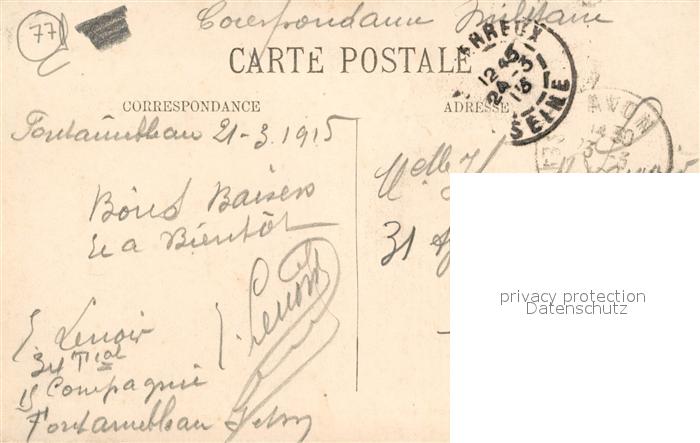 77
Correspondance Militaire
CARTE POSTALE
CORRESPONDANCE
ADRESSE
RREUX
12 45
24 - 3
15
SEINE
AVON
Fontainebleau 21-3.1915
Melle
31
Bons Baisers
et a Bientôt
E. Lenoir
E. Lenoir
34 Tial
15 Compagnie
Fontainebleau
privacy protection
Datenschutz